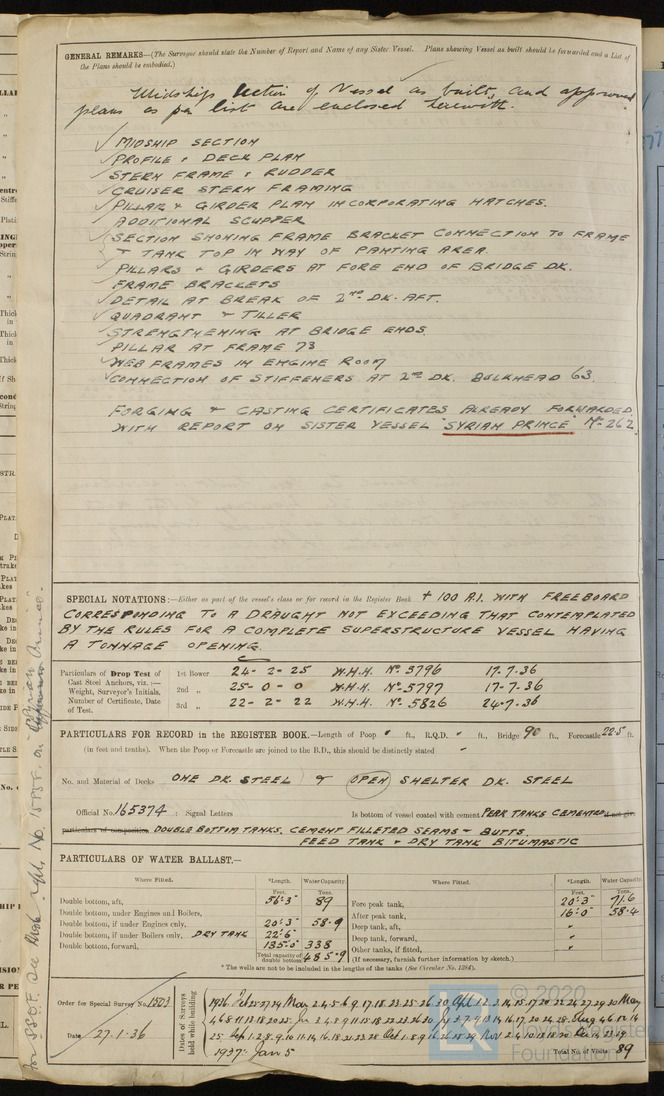 GENERAL REMARKS—(The Surveyor should state the Number of Report and Name of any Sister Vessel. Plans showing Vessel as built should be forwarded and a List of
the Plans should be embodied.)
Midships Section of Vessel as built, and approved
plans as per list are enclosed herewith.
MIDSHIP SECTION
PROFILE & DECK PLAN
STERN FRAME & RUDDER
CRUISER STERN FRAMING
PILLAR & GIRDER PLAN INCORPORATING HATCHES.
ADDITIONAL SCUPPER
SECTION SHOWING FRAME BRACKET CONNECTION TO FRAME
& TANK TOP IN WAY OF PANTING AREA.
PILLARS & GIRDERS AT FORE END OF BRIDGE DK.
FRAME BRACKETS
DETAIL AT BREAK OF 2ND DK. AFT.
QUADRANT & TILLER
STRENGTHENING AT BRIDGE ENDS.
PILLAR AT FRAME 73
WEB FRAMES IN ENGINE ROOM
CONNECTION OF STIFFENERS AT 2ND DK. BULKHEAD 63.
FORGING & CASTING CERTIFICATES ALREADY FORWARDED
WITH REPORT ON SISTER VESSEL SYRIAN PRINCE No. 262.
SPECIAL NOTATIONS:—Either as part of the vessel's class or for record in the Register Book + 100 A.1. WITH FREEBOARD
CORRESPONDING TO A DRAUGHT NOT EXCEEDING THAT CONTEMPLATED
BY THE RULES FOR A COMPLETE SUPERSTRUCTURE VESSEL HAVING
A TONNAGE OPENING.
Particulars of Drop Test of
Cast Steel Anchors, viz.:—
Weight, Surveyor's Initials,
Number of Certificate, Date
of Test.
1st Bower 24-2-25 W.H.H. No. 5796 17.7.36
2nd „ 25-0-0 W.H.H. No. 5797 17-7-36
3rd „ 22-2-22 W.H.H. No. 5826 24-7-36
PARTICULARS FOR RECORD in the REGISTER BOOK.—Length of Poop " ft., R.Q.D. " ft., Bridge 90 ft., Forecastle 22.5 ft.
(in feet and tenths). When the Poop or Forecastle are joined to the B.D., this should be distinctly stated "
No. and Material of Decks ONE DK. STEEL & OPEN SHELTER DK. STEEL
Official No. 165374 ; Signal Letters Is bottom of vessel coated with cement PEAK TANKS CEMENTED if not give
particulars of composition DOUBLE BOTTOM TANKS, CEMENT FILLETED SEAMS & BUTTS.
FEED TANK & DRY TANK BITUMASTIC
PARTICULARS OF WATER BALLAST.—
Where Fitted. *Length. Water Capacity. Where Fitted. *Length. Water Capacity.
Feet. Tons. Feet. Tons.
Double bottom, aft, 56'.3" 89 Fore peak tank, 20'.3" 71.6
Double bottom, under Engines and Boilers, After peak tank, 16'.0" 58.4
Double bottom, under Engines only, 20'.3" 58.9 Deep tank, aft, "
Double bottom, if under Boilers only, DRY TANK 22'.6" Deep tank, forward, "
Double bottom, forward, 135'.0" 338 Other tanks, if fitted, "
Total capacity of double bottom 485.9 (If necessary, furnish further information by sketch.)
* The wells are not to be included in the lengths of the tanks (See Circular No. 1284).
Order for Special Survey No. 1503
Date 27.1.36
Dates of Surveys held while building
1937: Jan 5
Total No. of Visits 89
© 2020
Lloyd's Register
Foundation